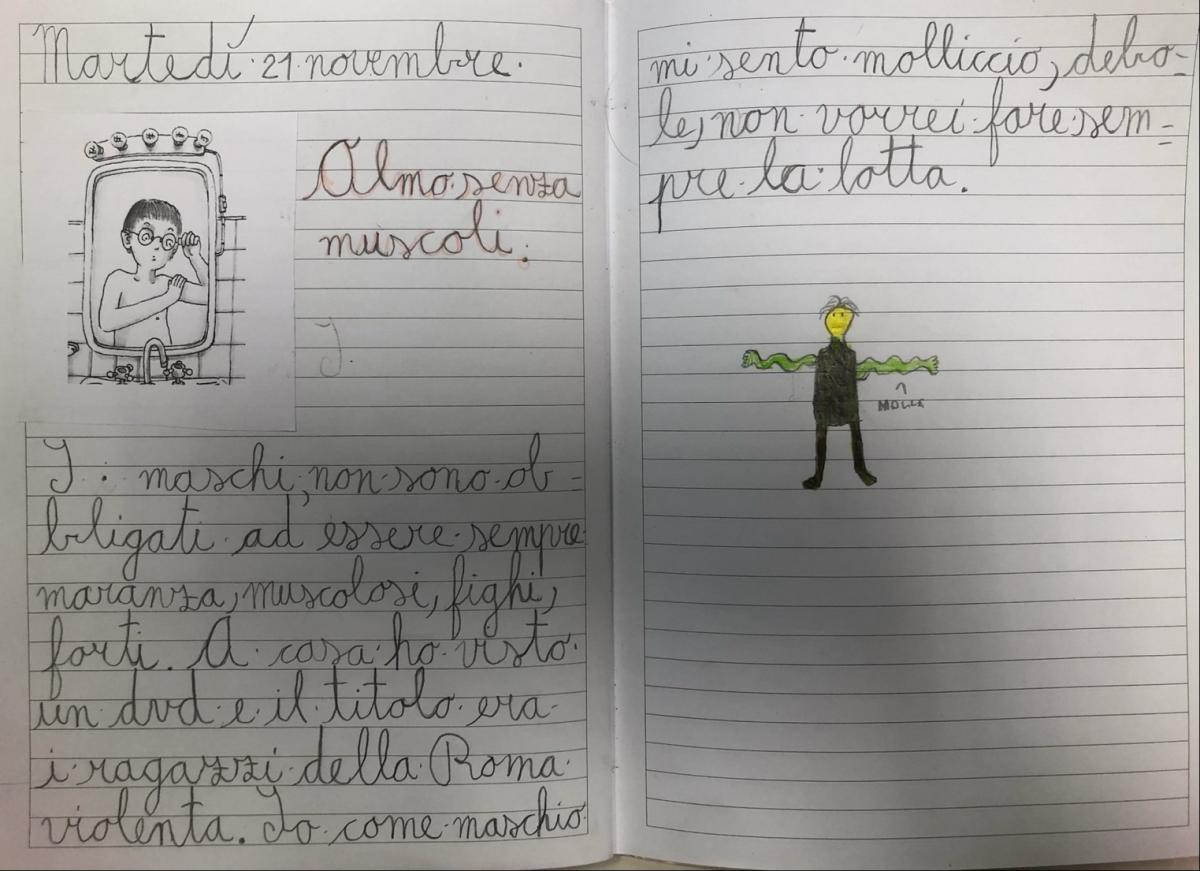 Martedí 21 novembre.
Almo senza
muscoli.
I.
I maschi, non sono ob-
bligati ad essere sempre
maranza, muscolosi, fighi,
forti. A casa ho visto
un dvd e il titolo era
i ragazzi della Roma
violenta. Io come maschio
mi sento molliccio, debo-
le, non vorrei fare sem-
pre la lotta.
MOLLE